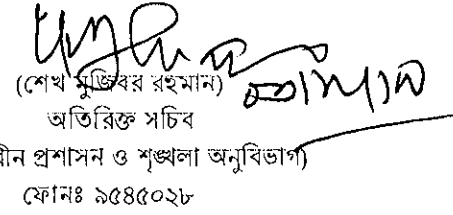 (শেখ মুজিবর রহমান)
অতিরিক্ত সচিব
প্রশাসন ও শৃঙ্খলা অনুবিভাগ)
ফোনঃ ৯৫৪৫০২৮